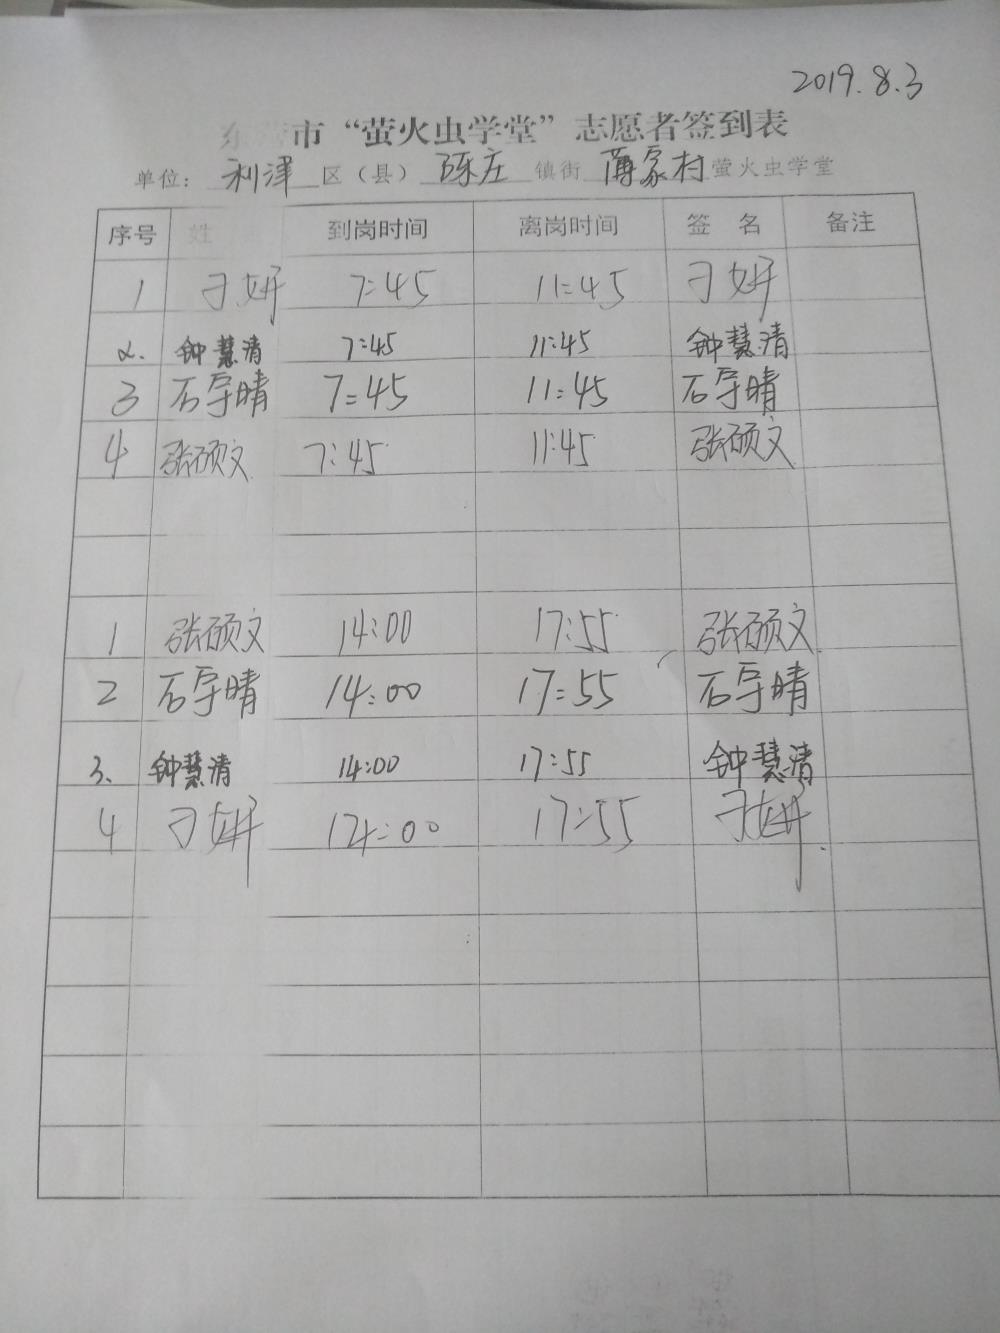 2019.8.3
东营市“萤火虫学堂”志愿者签到表
单位：利津区（县）陈庄镇街薄家村萤火虫学堂
序号 姓 到岗时间 离岗时间 签 名 备注
1 刁妍 7:45 11:45 刁妍
2. 钟慧清 7:45 11:45 钟慧清
3 石导晴 7:45 11:45 石导晴
4 张硕文 7:45 11:45 张硕文
1 张硕文 14:00 17:55 张硕文
2 石导晴 14:00 17:55 石导晴
3. 钟慧清 14:00 17:55 钟慧清
4 刁妍 14:00 17:55 刁妍